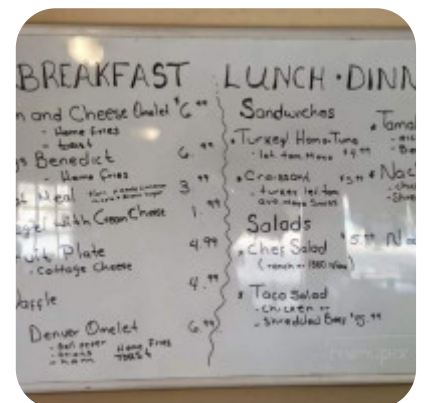 BREAKFAST
and Cheese Omelet $6.99
- Home Fries
- toast
Benedict 6.99
- Home Fries
Meal 3.99
with Cream Cheese 1.99
Plate 4.99
- Cottage Cheese
4.99
Denver Omelet 6.99
- Bell peper
- onions
- ham
Home Fries
Toast
LUNCH · DINN
Sandwiches
• Turkey/ Ham • Tuna
- let tom Mayo $4.99
• Croissant $5.99
- turkey let tom
Salads
• Chef Salad $5.99
(ranch or 1000 Island)
• Taco Salad
- Chicken or
- Shredded Beef $5.99